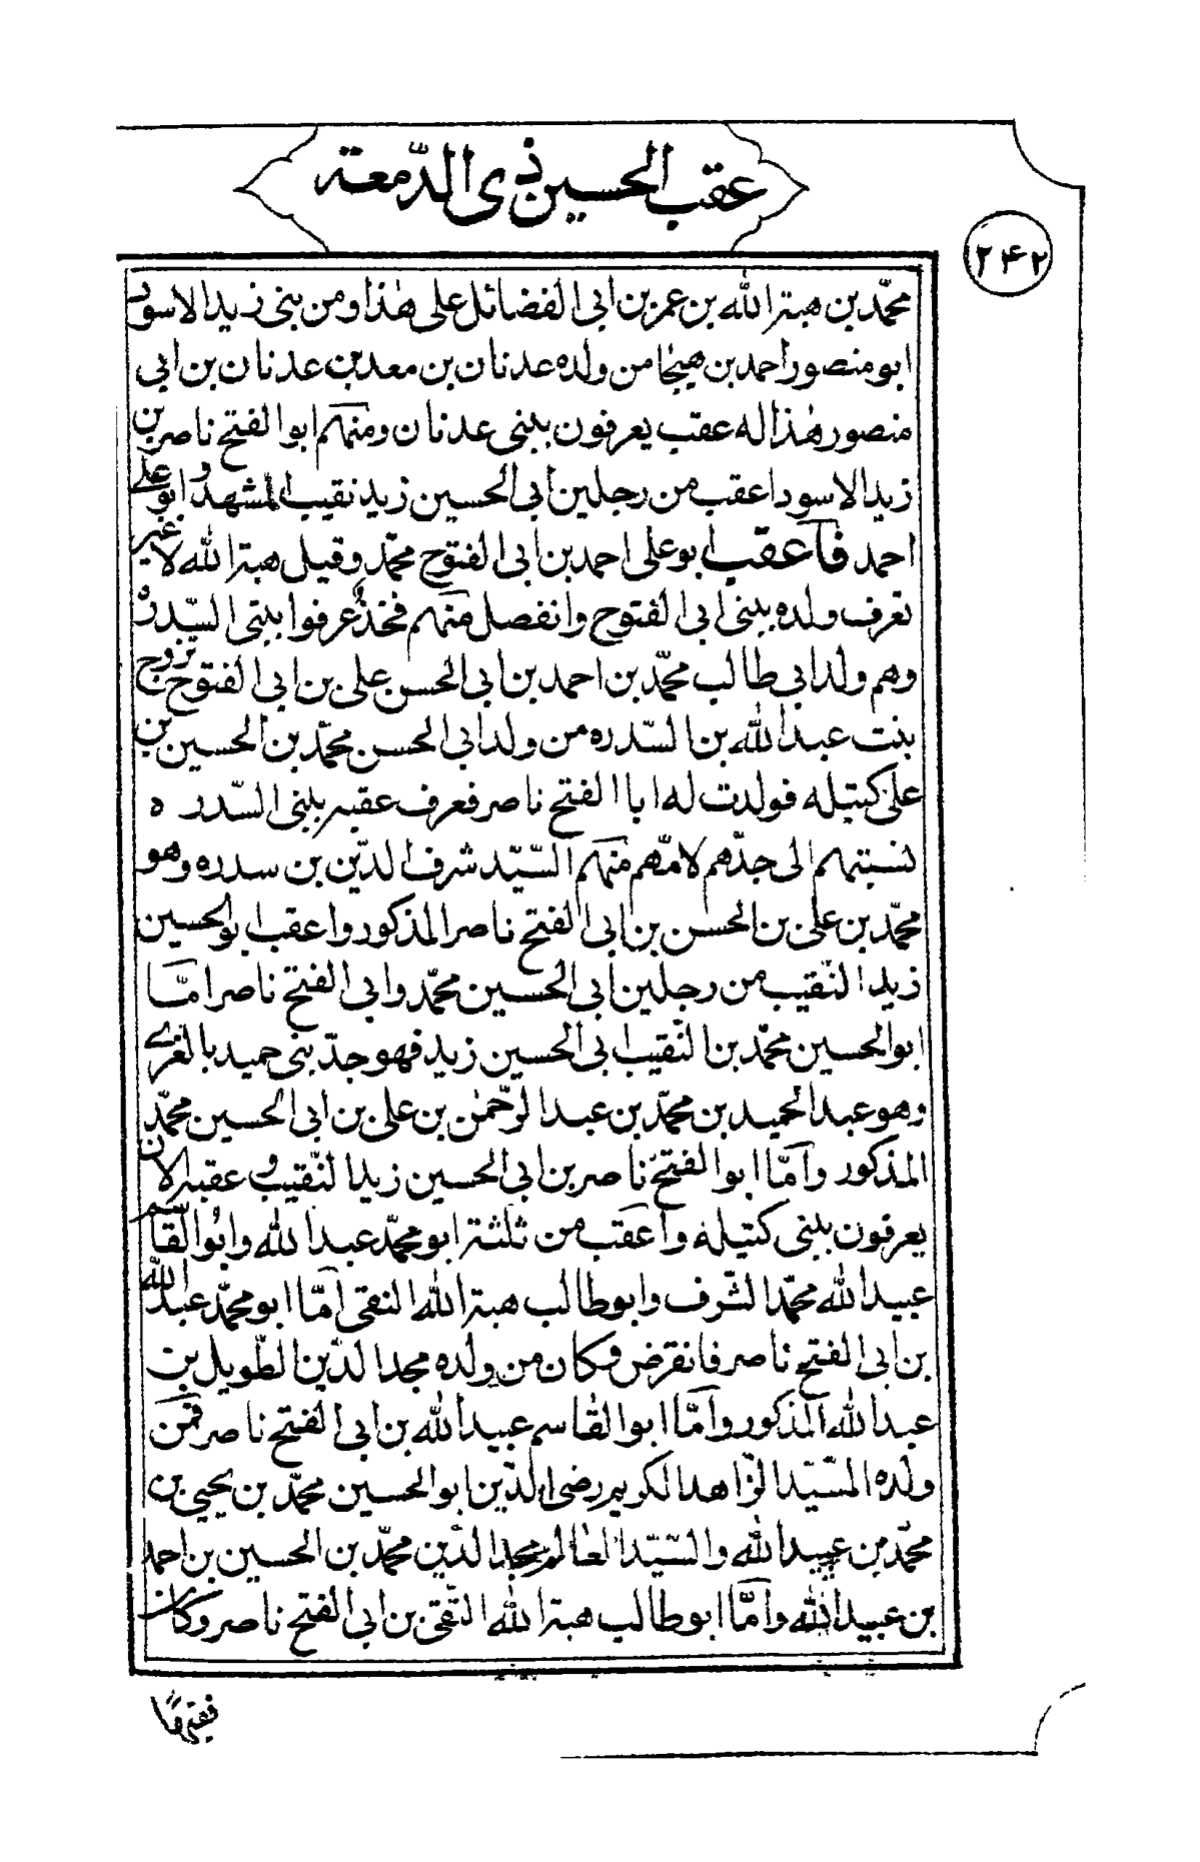 عقب الحسين ذى الدّمعة
٢٤٢
محمّد بن هبة الله بن عمر بن ابى الفضائل على هٰذا ومن بنى زيد الاسود
ابو منصور احمد بن هيجا من ولده عدنان بن معد بن عدنان بن ابى
منصور هٰذا له عقب يعرفون ببنى عدنان ومنهم ابو الفتح ناصر بن
زيد الاسود اعقب من رجلين ابى الحسين زيد نقيب المشهد وابو على
احمد فاَعقب ابو على احمد بن ابى الفتوح محمّد وقيل هبة الله لا غير
تعرف ولده ببنى ابى الفتوح وانفصل منهم فخذٌ عرفوا ببنى السّدره
وهم ولد ابى طالب محمّد بن احمد بن ابى الحسن على بن ابى الفتوح تزوج
بنت عبد الله بن السّدره من ولد ابى الحسن محمّد بن الحسين بن
على كتيله فولدت له ابا الفتح ناصر فعرف عقبه ببنى السّدره
لنسبتهم الى جدّهم لامّهم منهم السّيّد شرف الدّين بن سدره وهو
محمّد بن على بن الحسن بن ابى الفتح ناصر المذكور واعقب ابو الحسين
زيد النّقيب من رجلين ابى الحسين محمّد وابى الفتح ناصر امّا
ابو الحسين محمّد بن النّقيب ابى الحسين زيد فهو جدّ بنى حميد بالغرى
وهو عبد الحميد بن محمّد بن عبد الرّحمٰن بن على بن ابى الحسين محمّد
المذكور واَمّا ابو الفتح ناصر بن ابى الحسين زيد النّقيب وعقبه الان
يعرفون ببنى كتيله واَعقب من ثلثة ابو محمّد عبد الله وابو القاسم
عبيد الله محمّد الشّرف وابو طالب هبة الله النقى اَمّا ابو محمّد عبد الله
بن ابى الفتح ناصر فانقرض وكان من ولده مجد الدّين الطّويل بن
عبد الله المذكور واَمّا ابو القٰاسم عبيد الله بن ابى الفتح ناصر فمن
ولده السّيّد الزّاهد الكريم رضى الدّين ابو الحسين محمّد بن يحيى بن
محمّد بن عبيد الله والسّيّد العٰالم مجد الدّين محمّد بن الحسين بن احمد
بن عبيد الله واَمّا ابو طالب هبة الله التّقى بن ابى الفتح ناصر وكان
فقيهًا